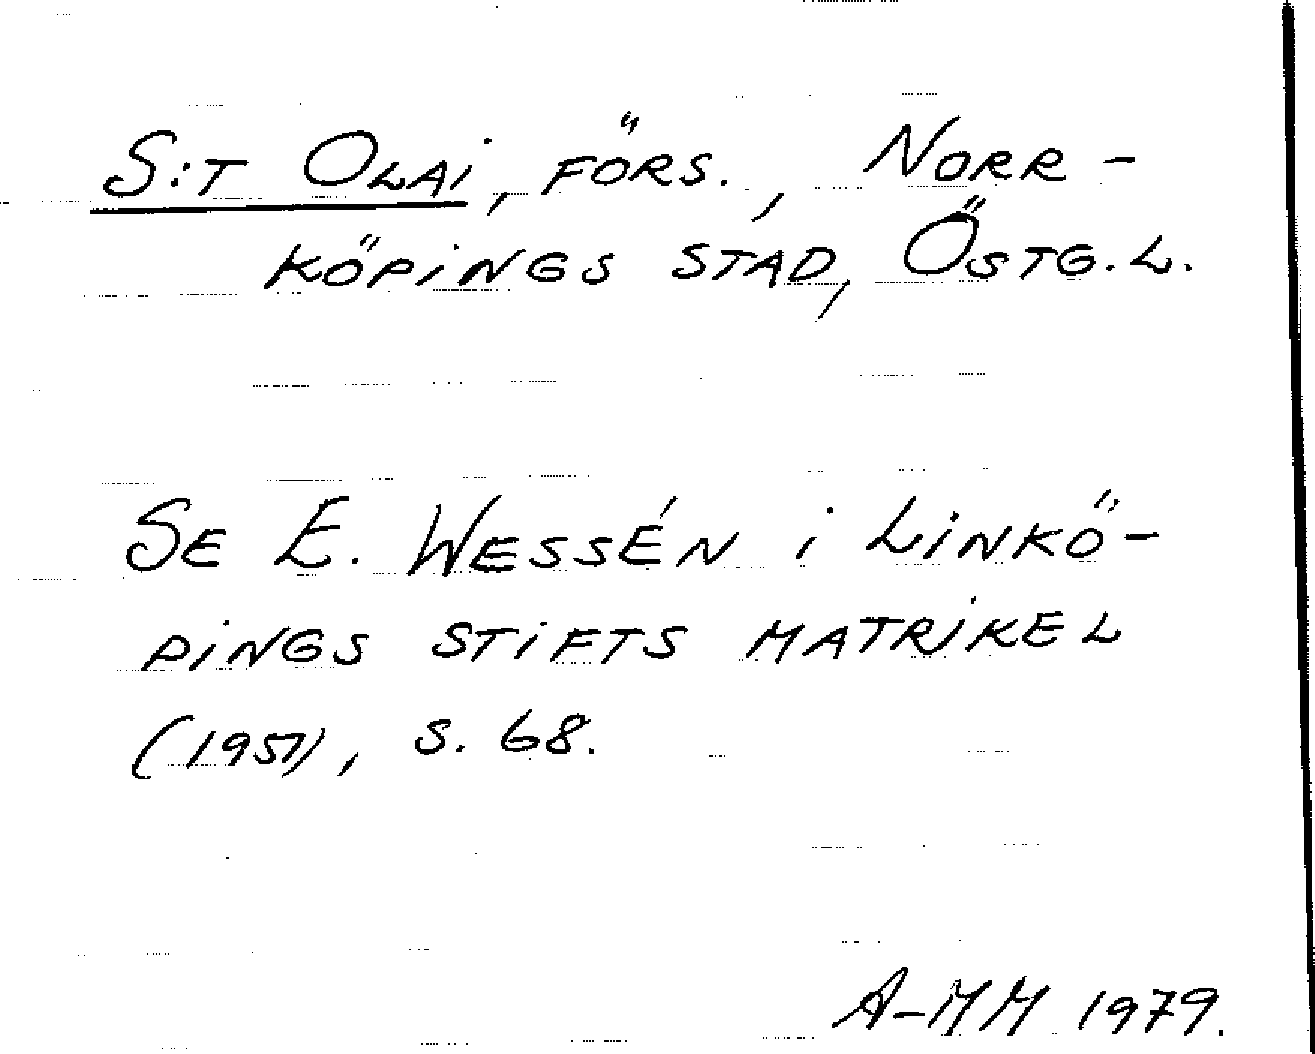 S:t Olai, förs., Norr-
köpings stad, Östg.l.
Se E. Wessén i Linkö-
pings stifts matrikel
(1951), s. 68.
A-MM 1979.